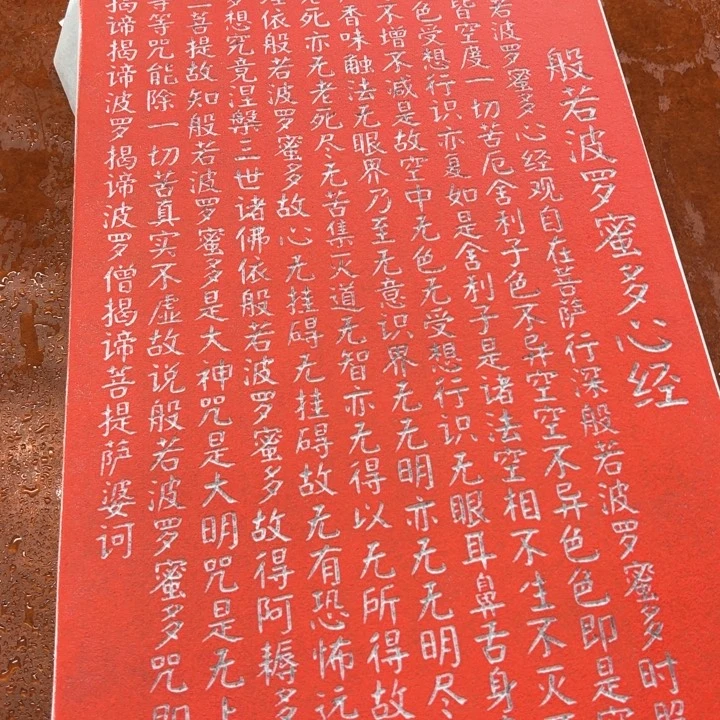 般若波罗蜜多心经
若波罗蜜多心经观自在菩萨行深般若波罗蜜多时
皆空度一切苦厄舍利子色不异空空不异色色即是
色受想行识亦复如是舍利子是诸法空相不生不灭
不增不减是故空中无色无受想行识无眼耳鼻舌身
香味触法无眼界乃至无意识界无无明亦无无明尽
死亦无老死尽无苦集灭道无智亦无得以无所得故
依般若波罗蜜多故心无挂碍无挂碍故无有恐怖远
想究竟涅槃三世诸佛依般若波罗蜜多故得阿耨多
菩提故知般若波罗蜜多是大神咒是大明咒是无上
等等咒能除一切苦真实不虚故说般若波罗蜜多咒即
揭谛揭谛波罗揭谛波罗僧揭谛菩提萨婆诃